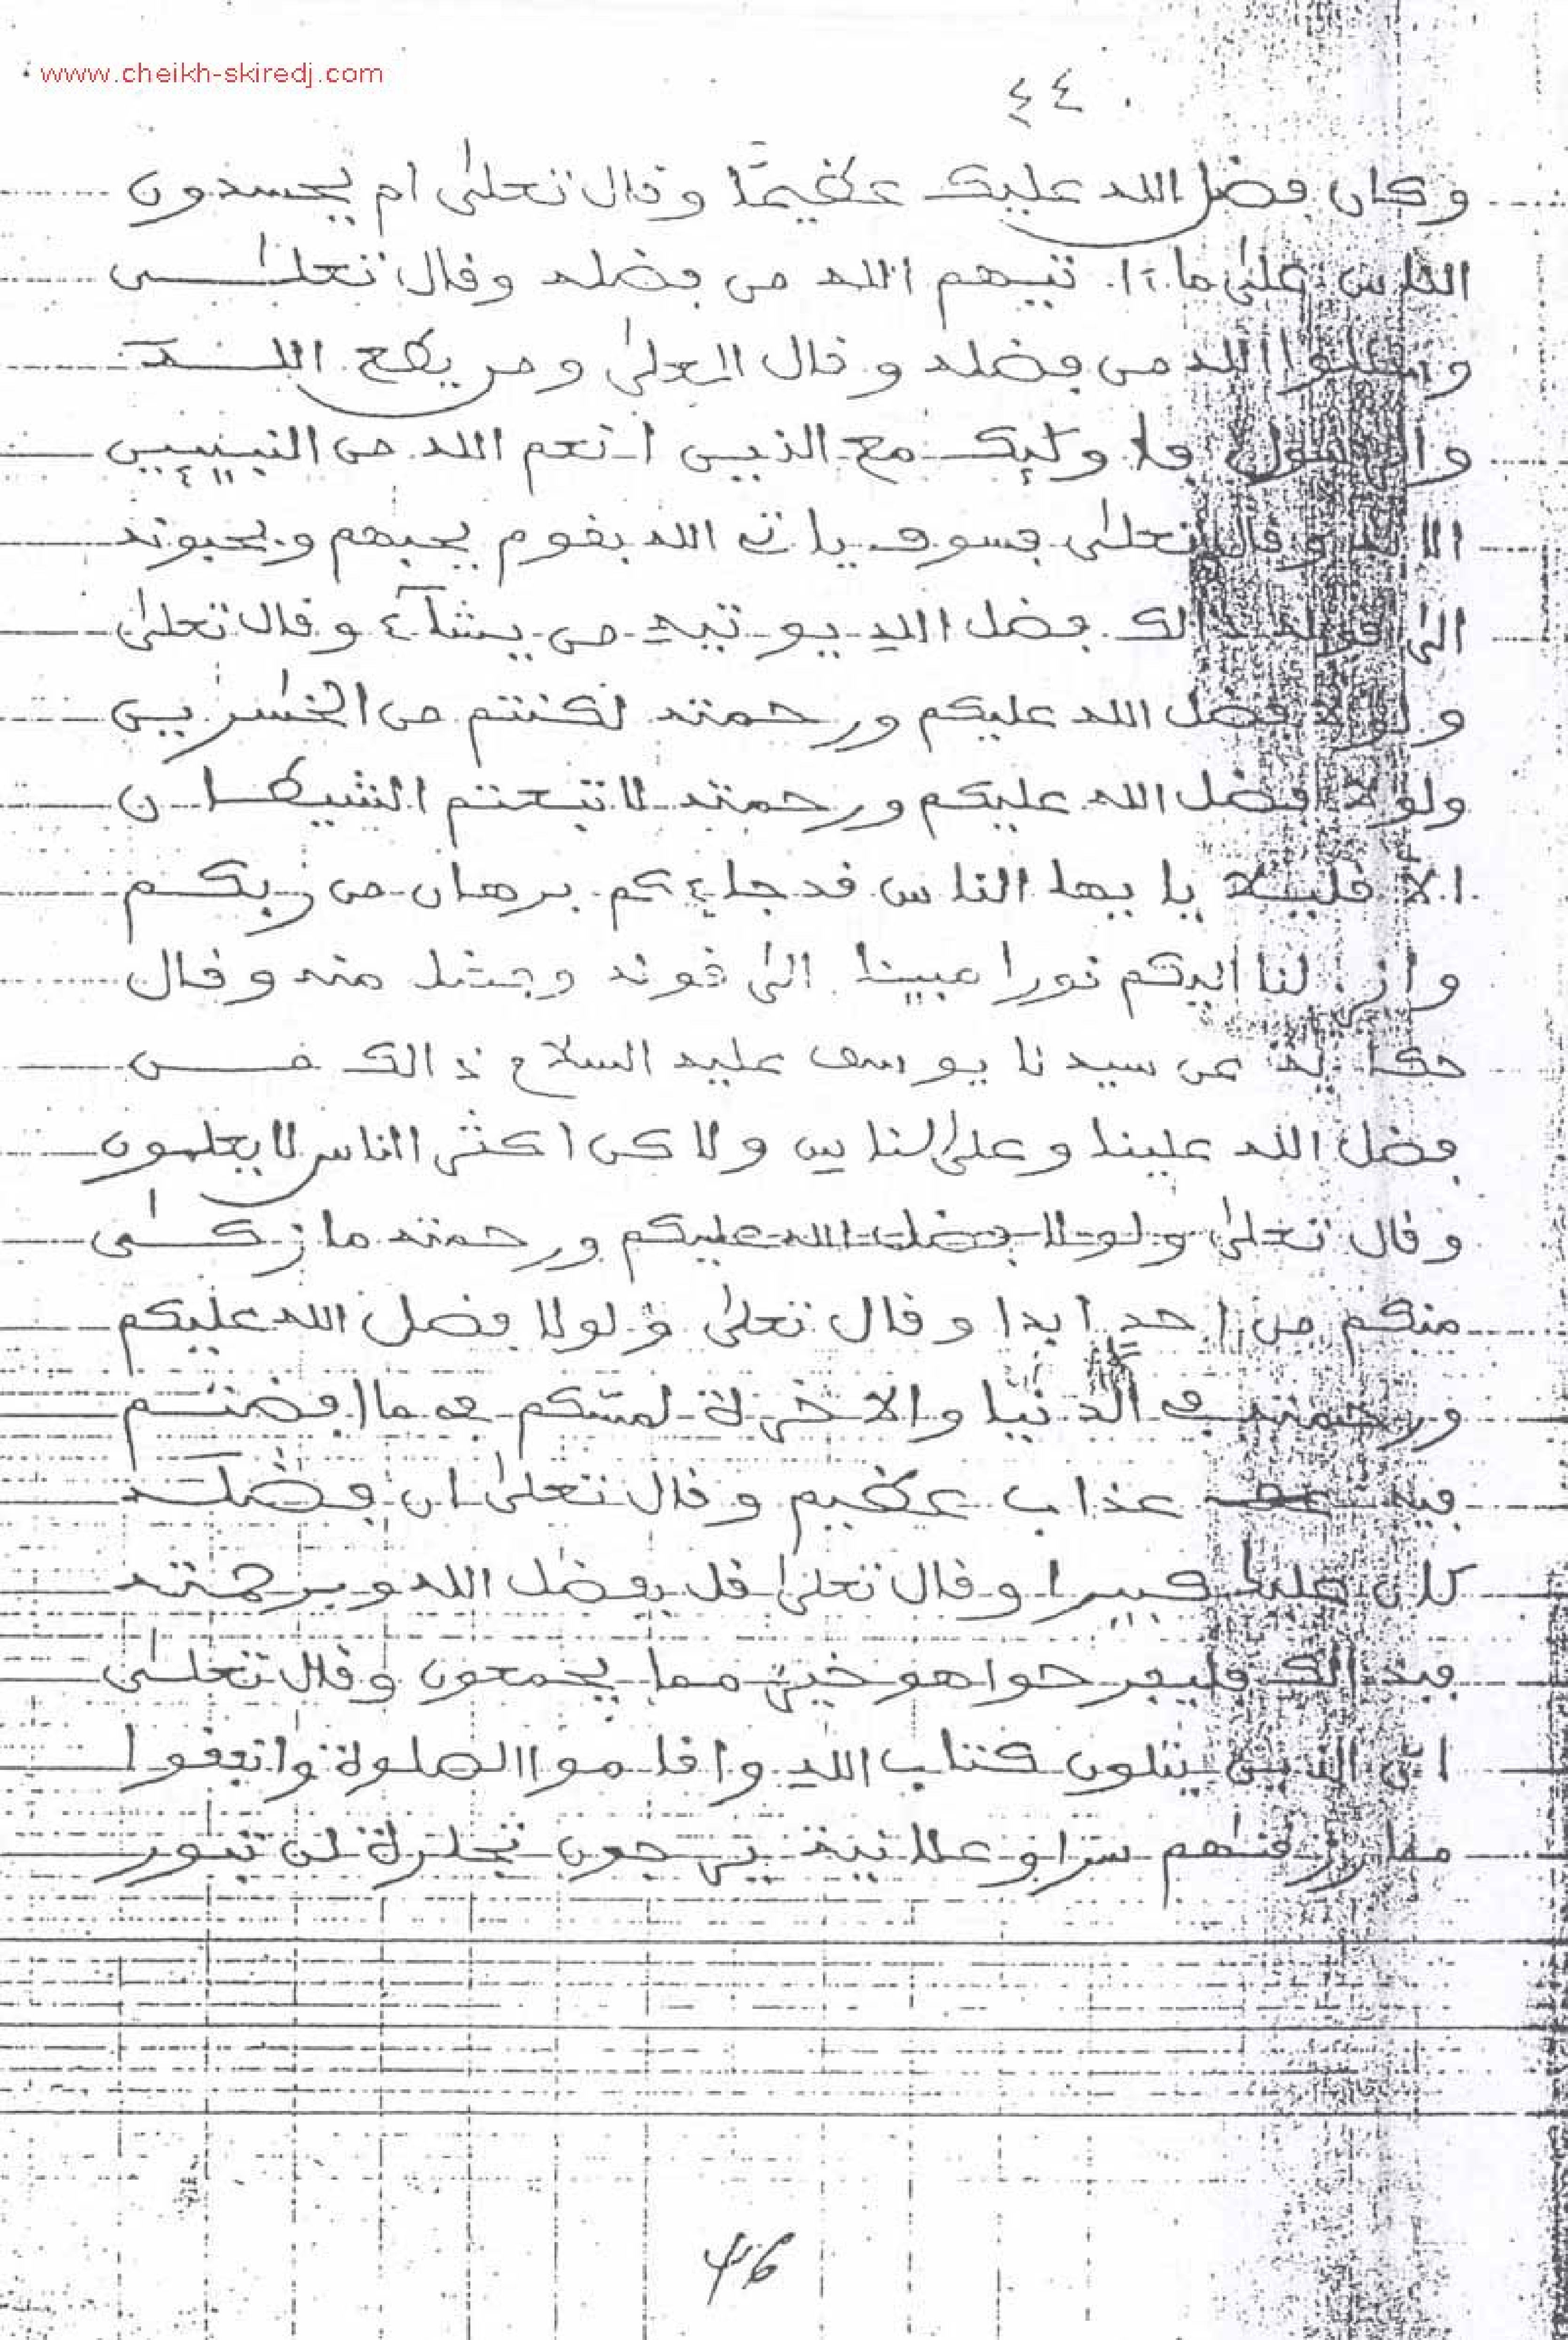 www.cheikh-skiredj.com
٤٤
وكان فضل الله عليك عظيما وقال تعلى ام يحسدون
الناس على ما ءا تيهم الله من فضله وقال تعلى
وسئلوا الله من فضله وقال تعلى ومن يطع اللـه
والرسول فا ولئك مع الذين ا نعم الله من النبيين
الاية وقال تعلى فسوف ياتي الله بقوم يحبهم ويحبونه
الى قوله ذالك فضل الله يو تيه من يشآء وقال تعلى
ولولا فضل الله عليكم ورحمته لكنتم من الخسريين
ولولا فضل الله عليكم ورحمته لاتبعتم الشيطان
الا قليلا يا يها الناس قد جاءكم برهان من ربكم
وانز لنا اليكم نورا مبينا الى قوله وفضل منه وقال
حكاية عن سيدنا يوسف عليه السلام ذالك من
فضل الله علينا وعلى الناس ولاكن اكثر الناس لا يعلمون
وقال تعلى ولولا فضل الله عليكم ورحمته ما زكى
منكم من احد ابدا وقال تعلى ولولا فضل الله عليكم
ورحمته في الدنيا والاخرة لمسكم في ما افضتم
فيه عذاب عظيم وقال تعلى ان فضله
كان عليك كبيرا وقال تعلى قل بفضل الله وبرحمته
فبذالك فليفرحوا هو خير مما يجمعون وقال تعلى
ان الذين يتلون كتاب الله واقا موا الصلوة وانفقوا
مما رزقناهم سرا وعلانية يرجون تجارة لن تبور